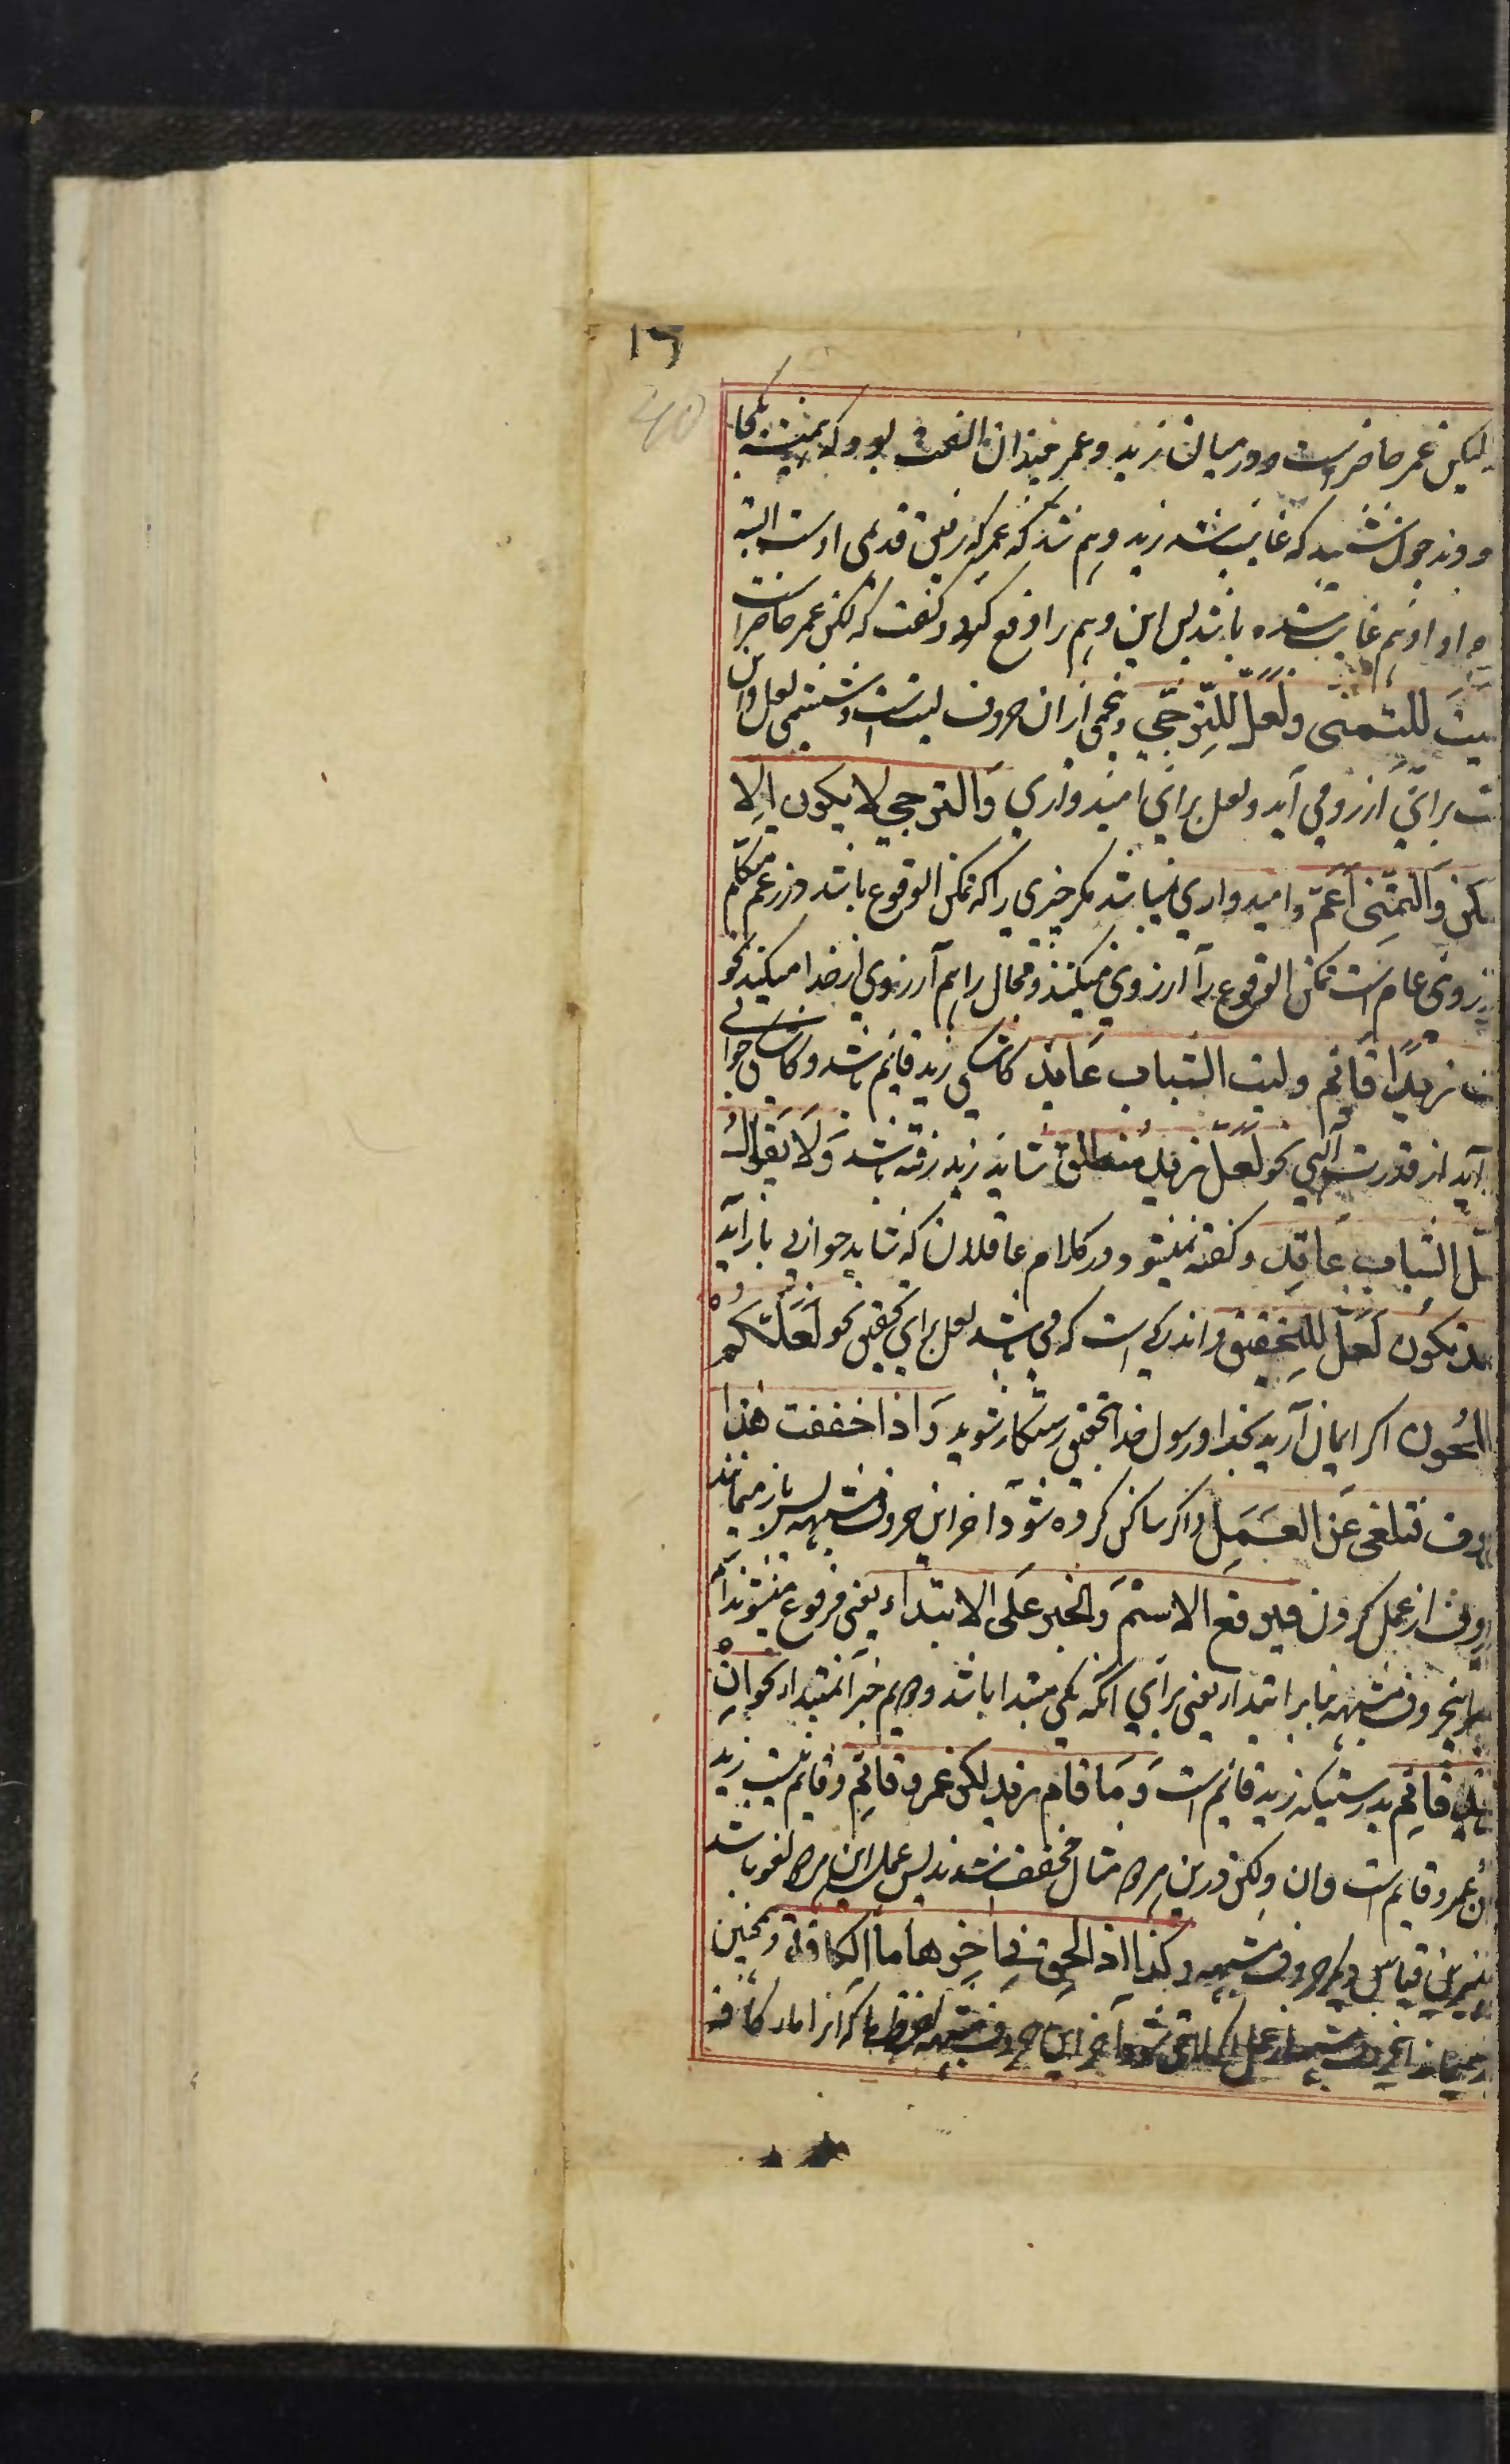 ١٦
40
لیکن عمر حاضرست و درمیان زید و عمر چندان الفت بود که همیشه یکجا
بودند چون شنید که غایب شد زید وهم شد که عمر که رفیق قدیمی اوست البته
او هم غایب شده باشد پس این وهم را دفع کرد و گفت که لکن عمر حاضر است
لیتَ للتمنی ولَعَلّ للتّرجّی و پنجمی ازان حروف لیت است و ششمی لعل و ان
برائی آرزو می آید و لعل برائی امیدواری وَالترجی لا یکون الا
وَالتمَنّی اَعَمّ و امیدواری نمیباشد مکر چیزی را که ممکن الوقوع باشد در زعم متکلم
آرزوی عام است ممکن الوقوع را آرزوی میکنند و محال را هم آرزوی از خدا میکنند نحو
زیدًا قَائم ولیت الشباب عَایدٌ کاشکی زید قایم باشد و کاشکی جوانی
آید از قدرت الهی نحو لَعَلّ زیدٌ منطلقٌ شاید زید رفته باشد وَلَا یَقَالُ
الشباب عَایدٌ و گفته نمیشود در کلام عاقلان که شاید جوانی باز آید
تکون لَعَلّ للتحقیق و اندکی است که می باشد لعل برای تحقیق نحو لَعَلّکُم
اکر ایمان آرید بخدا و رسول خدا تحقیق رستکار شوید وَاذا خففت هٰذا
فتلغی عَن العَمَلِ و اکر ساکن کرده شود آخر این حروف مشبهه پس باز میمانند
از عمل کردن فیرفع الاسمَ والخبر عَلی الابتداء یعنی مرفوع میشوند اسم
اینحروف مشبهه بنابر ابتدا یعنی برائی آنکه یکی مبتدا باشد و دویم خبر آنمبتدا نحو اِنْ
زیدٌ قائمٌ بدرستیکه زید قایم است وَمَا قام زیدٌ لکن عمرو قائمٌ و قایم نیست زید
عمرو قایم است و ان و لکن درین هر دو مثال مخفف شدند پس عمل این هر دو لغو باشد
برین قیاس دیگر حروف مشبهه وکذا اذا لحِق فی اٰخِرها ما الکافة و همچنین
باز میماند اینحروف مشبهه از عمل اکر لاحق شود آخر این حروف مشبهه لفظ ما که آنرا ماء کافه